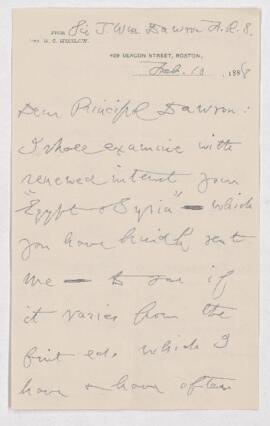 FROM Sir J. Wm Dawson F.R.S.
429 BEACON STREET, BOSTON,
Feb. 10 188
Dear Principal Dawson:
I shall examine with
renewed interest your
"Egypt & Syria" — which
you have kindly sent
me — to see if
it varies from the
first ed. which I
have & have often